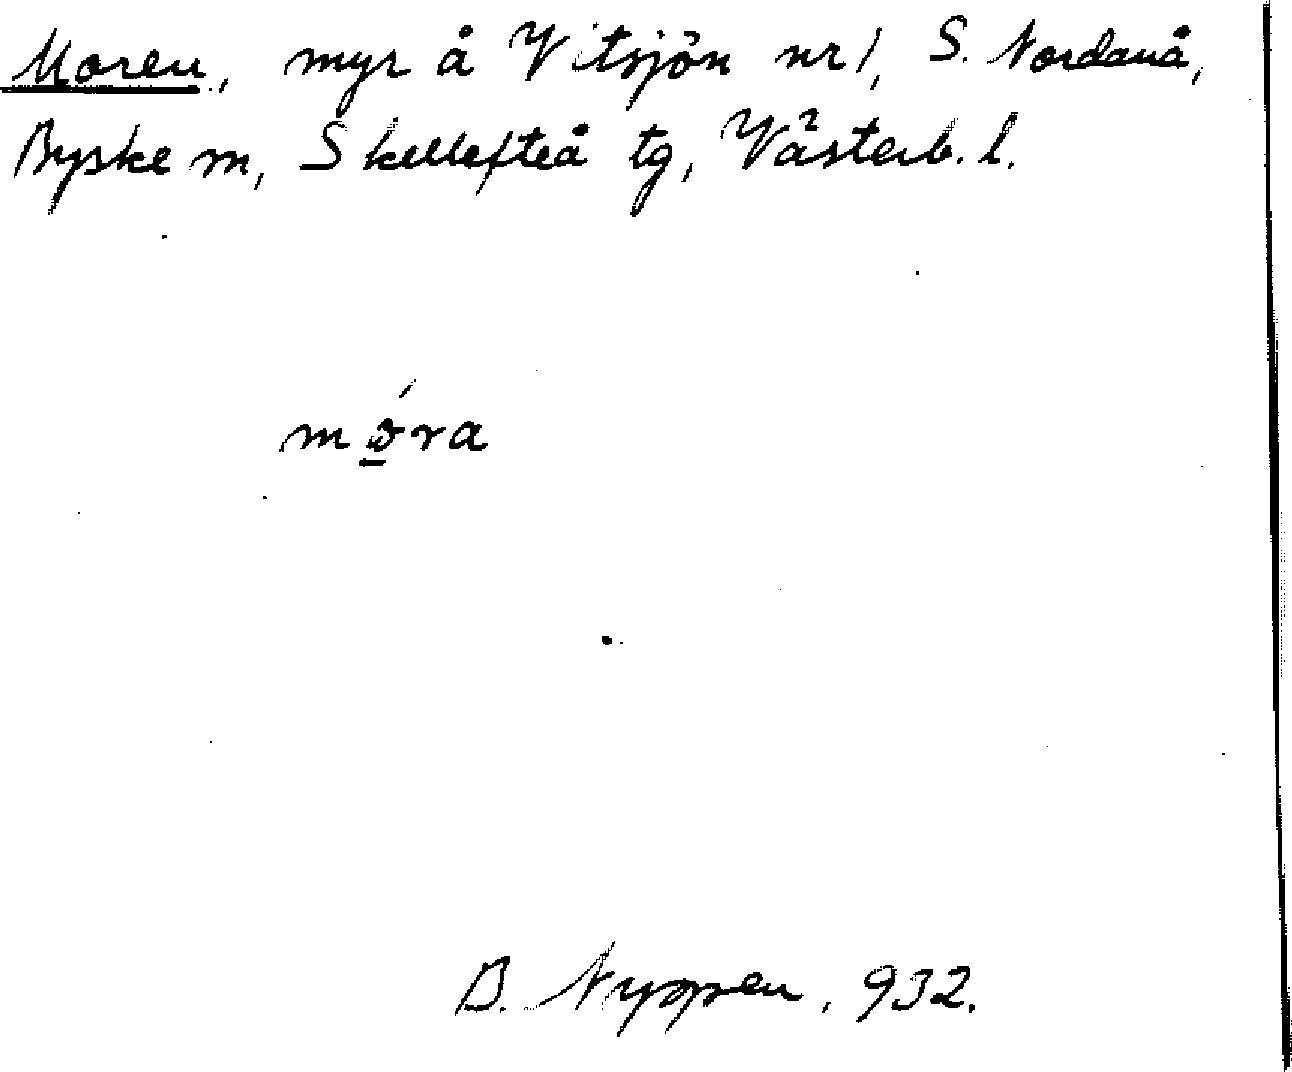 Moren, myr å Vitsjön nr 1, S. Nordanå,
Byske m, Skellefteå tg, Västerb. l.
mó̱ra
B. Nyppen, 932.